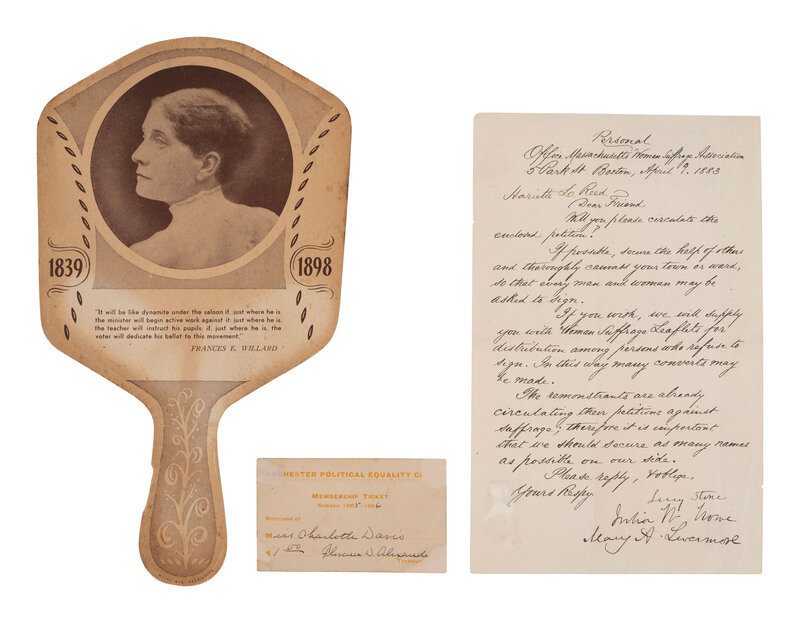 1839
1898
"It will be like dynamite under the saloon if, just where he is,
the minister will begin active work against it; just where he is,
the teacher will instruct his pupils; if, just where he is, the
voter will dedicate his ballot to this movement."
FRANCES E. WILLARD
ROCHESTER POLITICAL EQUALITY Cl
MEMBERSHIP TICKET
Season 1905-1906
Received of
Miss Charlotte Davis
$1.00
Personal
Office Massachusetts Woman Suffrage Association
5 Park St Boston, April 9. 1883
Hariette L. Reed
Dear Friend
Will you please circulate the
enclosed petition?
If possible, secure the help of others
and thoroughly canvass your town or ward,
so that every man and woman may be
asked to sign.
If you wish, we will supply
you with Woman Suffrage Leaflets for
distribution among persons who refuse to
sign. In this way many converts may
be made.
The remonstrants are already
circulating their petitions against
suffrage; therefore it is important
that we should secure as many names
as possible on our side.
Please reply, & oblige,
Yours Respy
Lucy Stone
Julia W. Howe
Mary A. Livermore